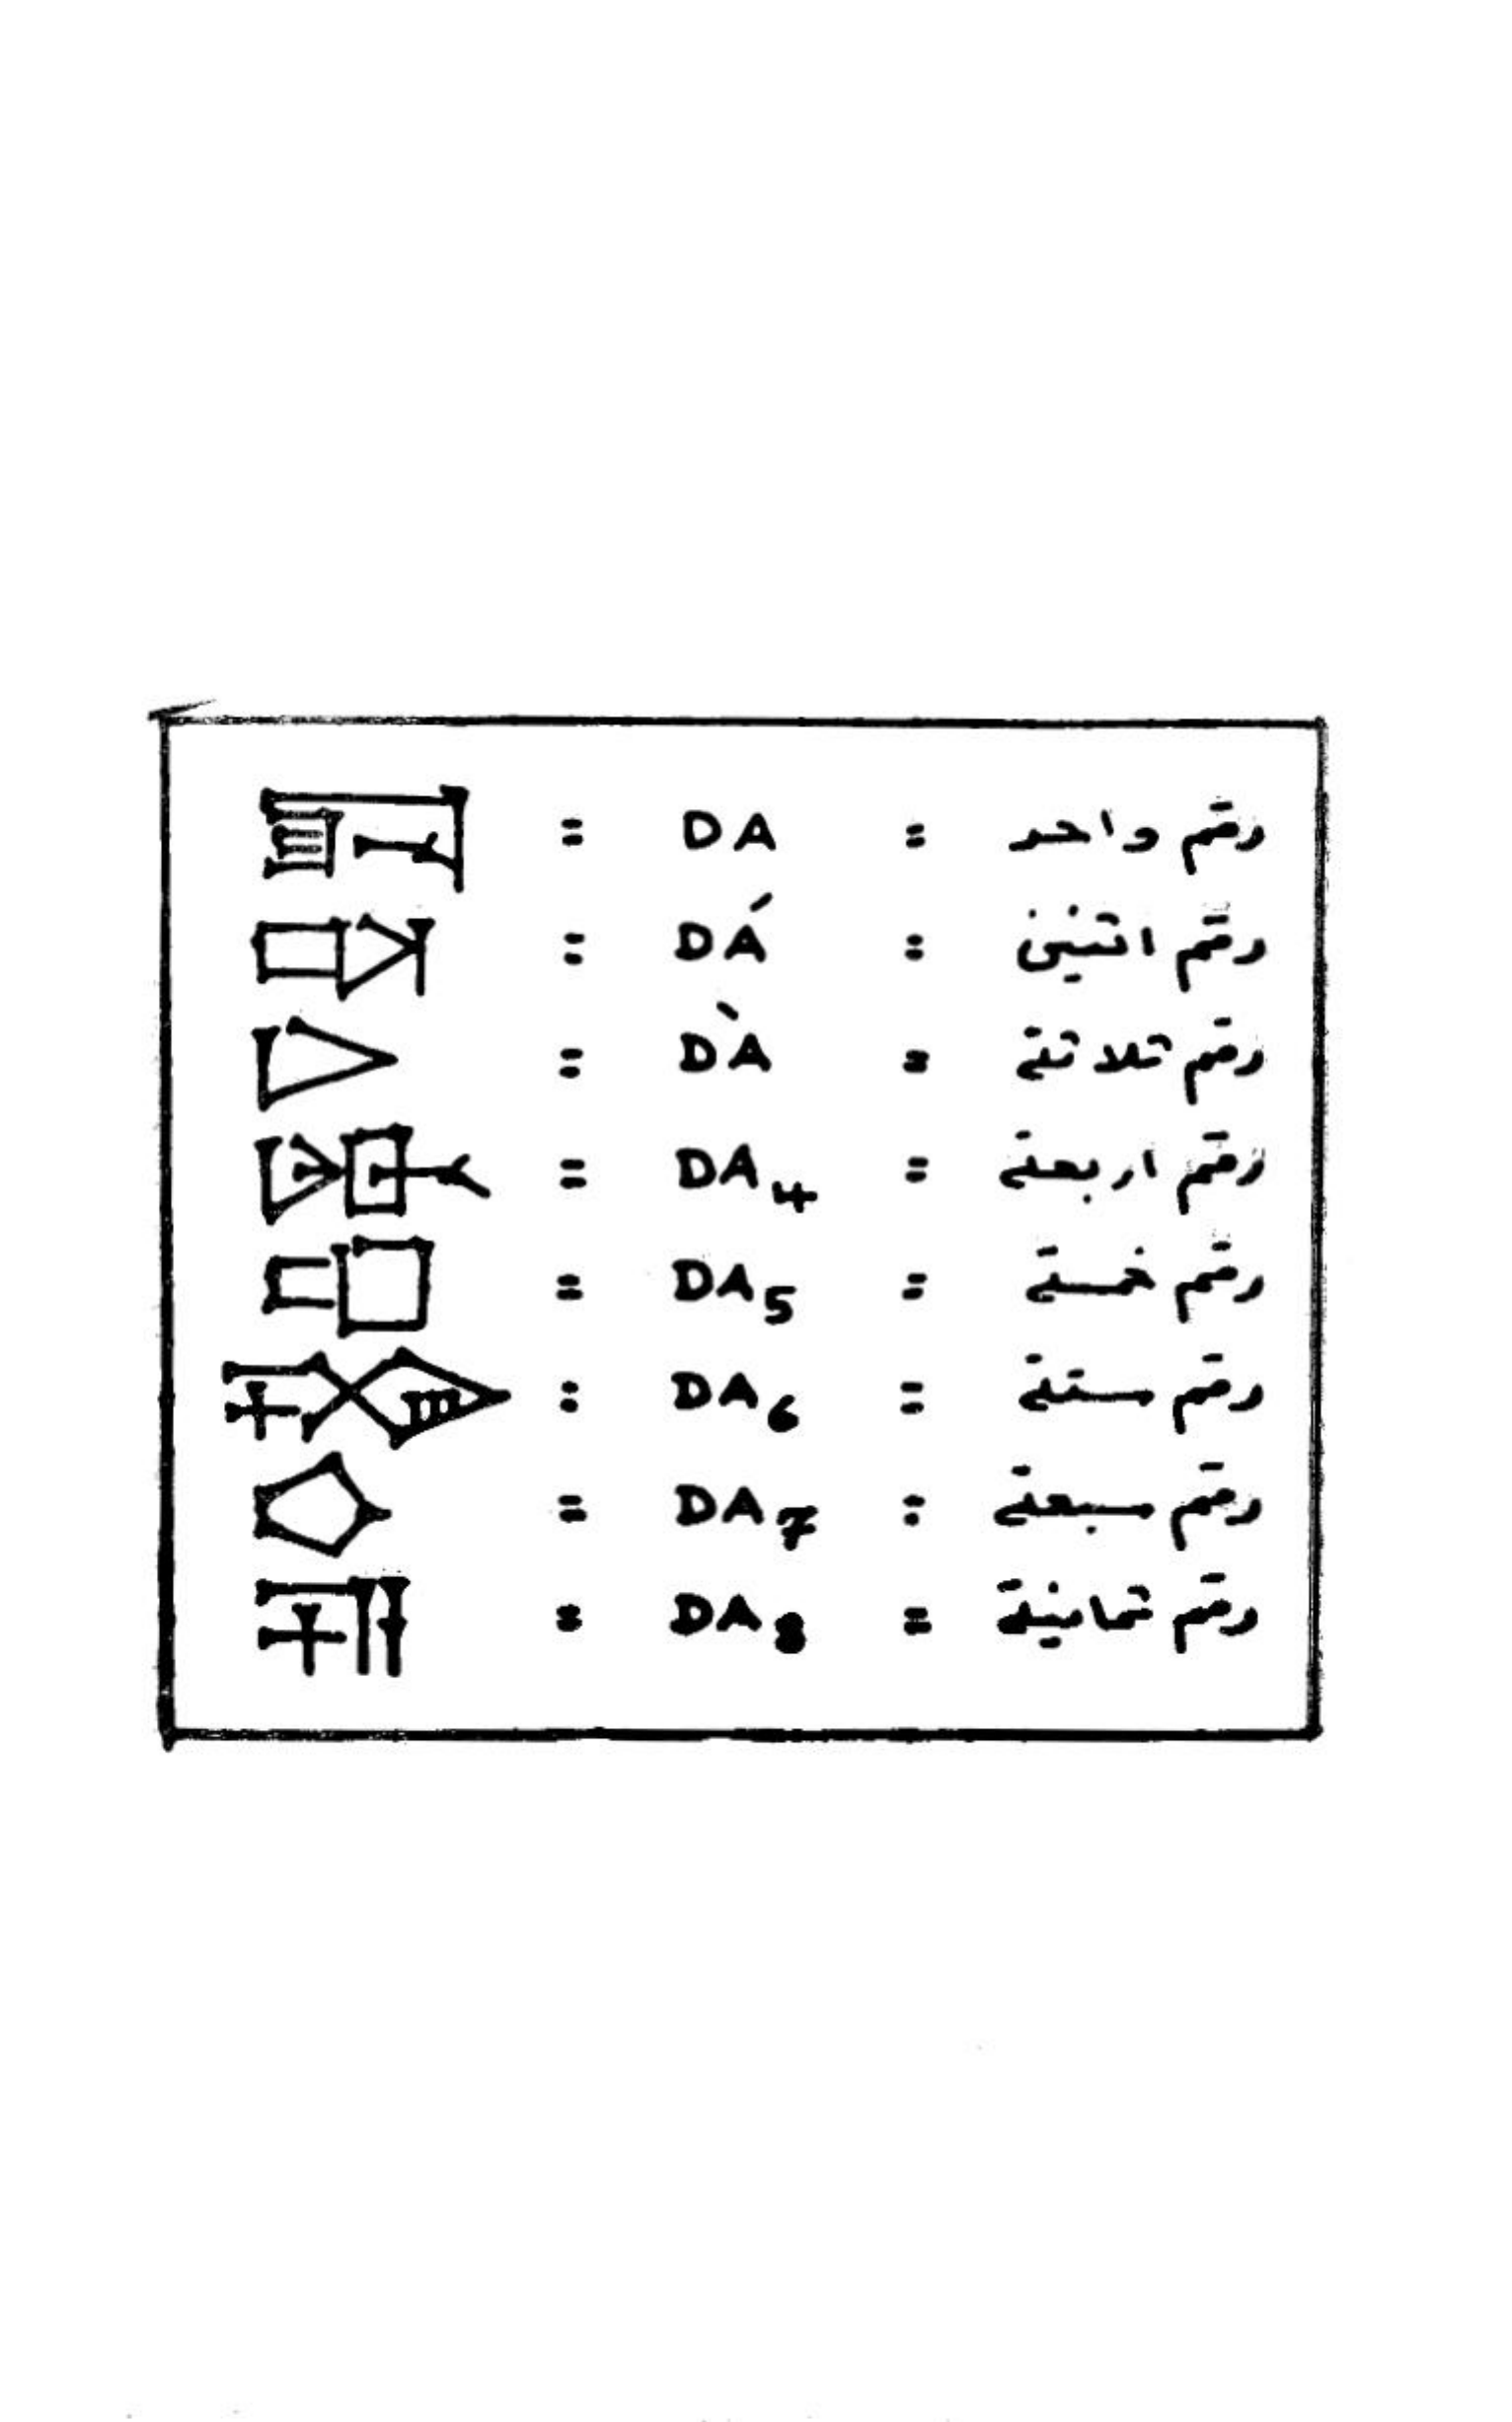 = DA = رقم واحد
= DÁ = رقم اثنين
= DÀ = رقم ثلاثة
= DA₄ = رقم اربعة
= DA₅ = رقم خمسة
= DA₆ = رقم ستة
= DA₇ = رقم سبعة
= DA₈ = رقم ثمانية